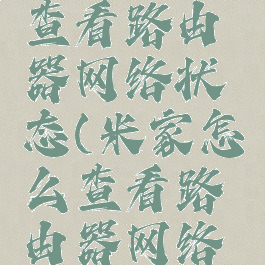 查看路由
器网络状
态(米家怎
么查看路
由器网络